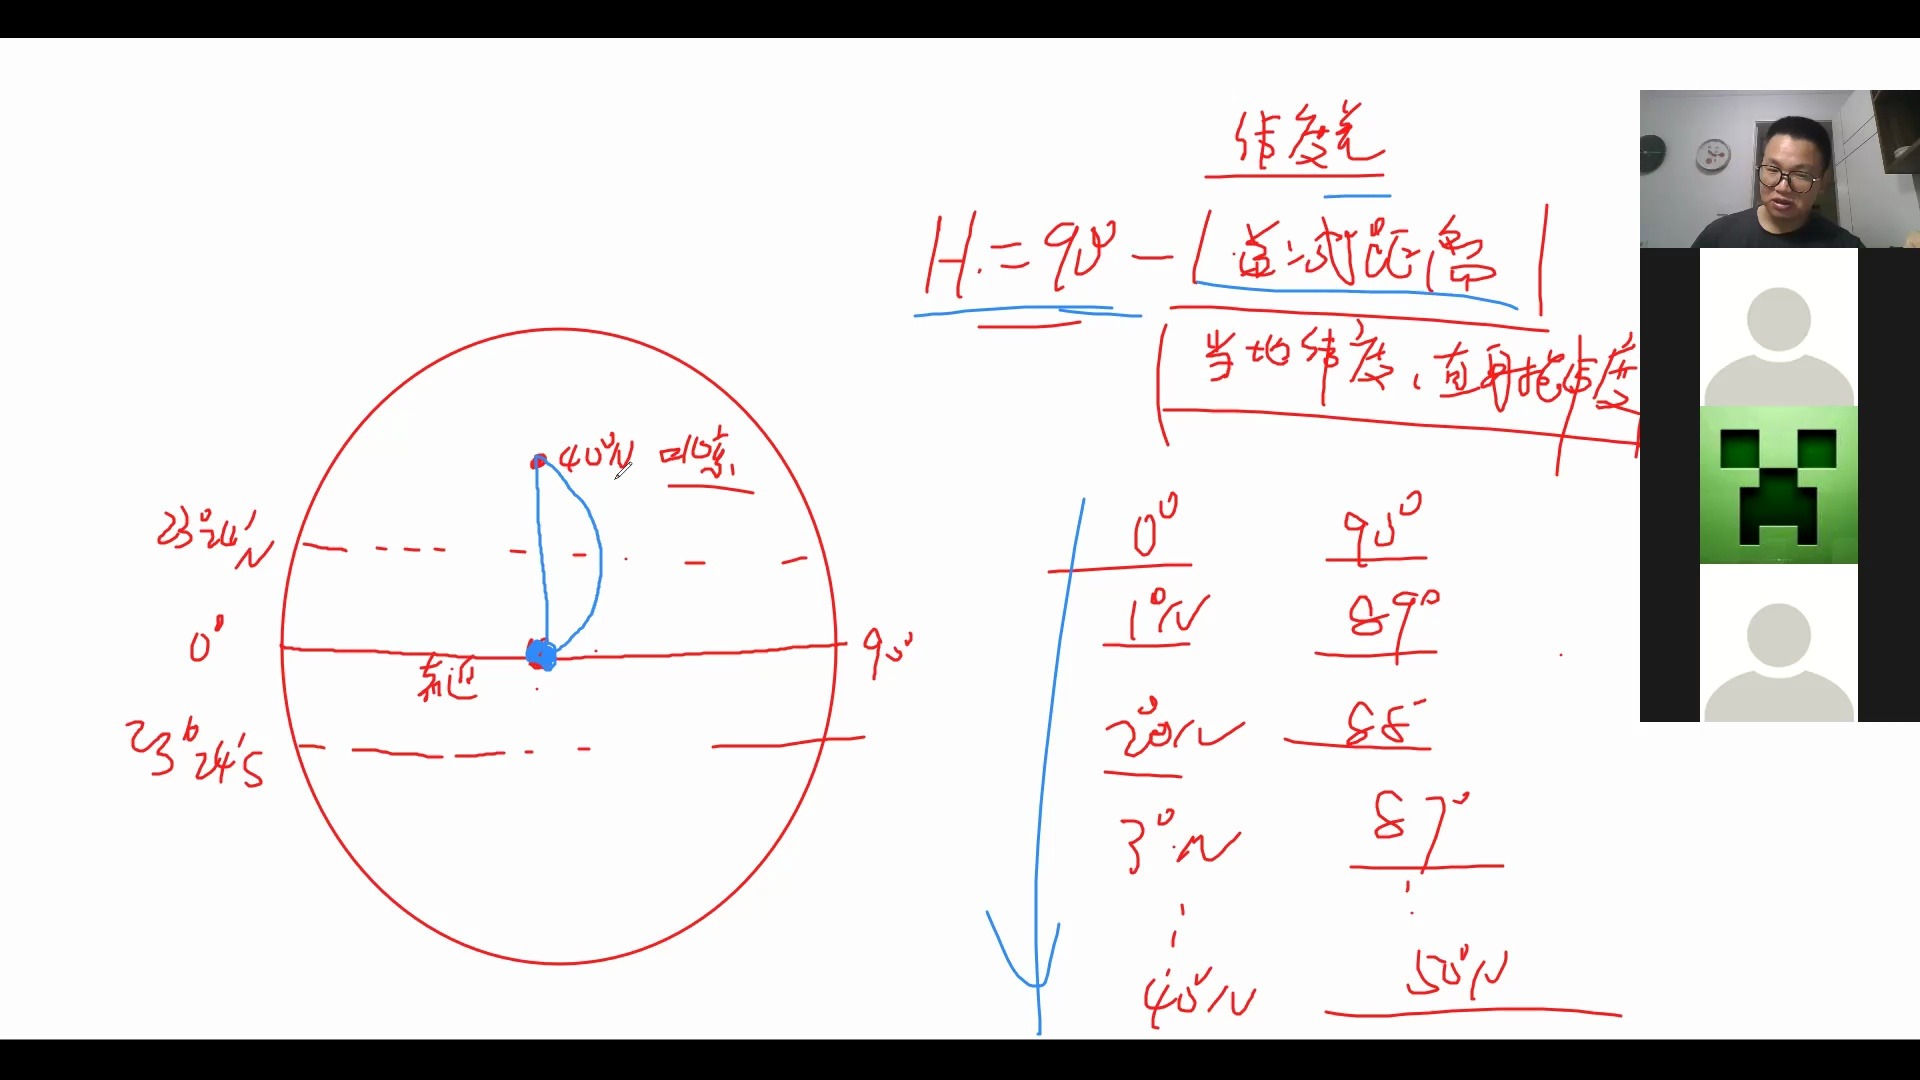 纬度差
H = 90° - | 直之间距离 |
| 当地纬度, 直射点纬度
40°N 北京
23°24′N
0°
赤道
90°
23°24′S
0° 90°
1°N 89°
2°N 88°
3°N 87°
40°N 50°N